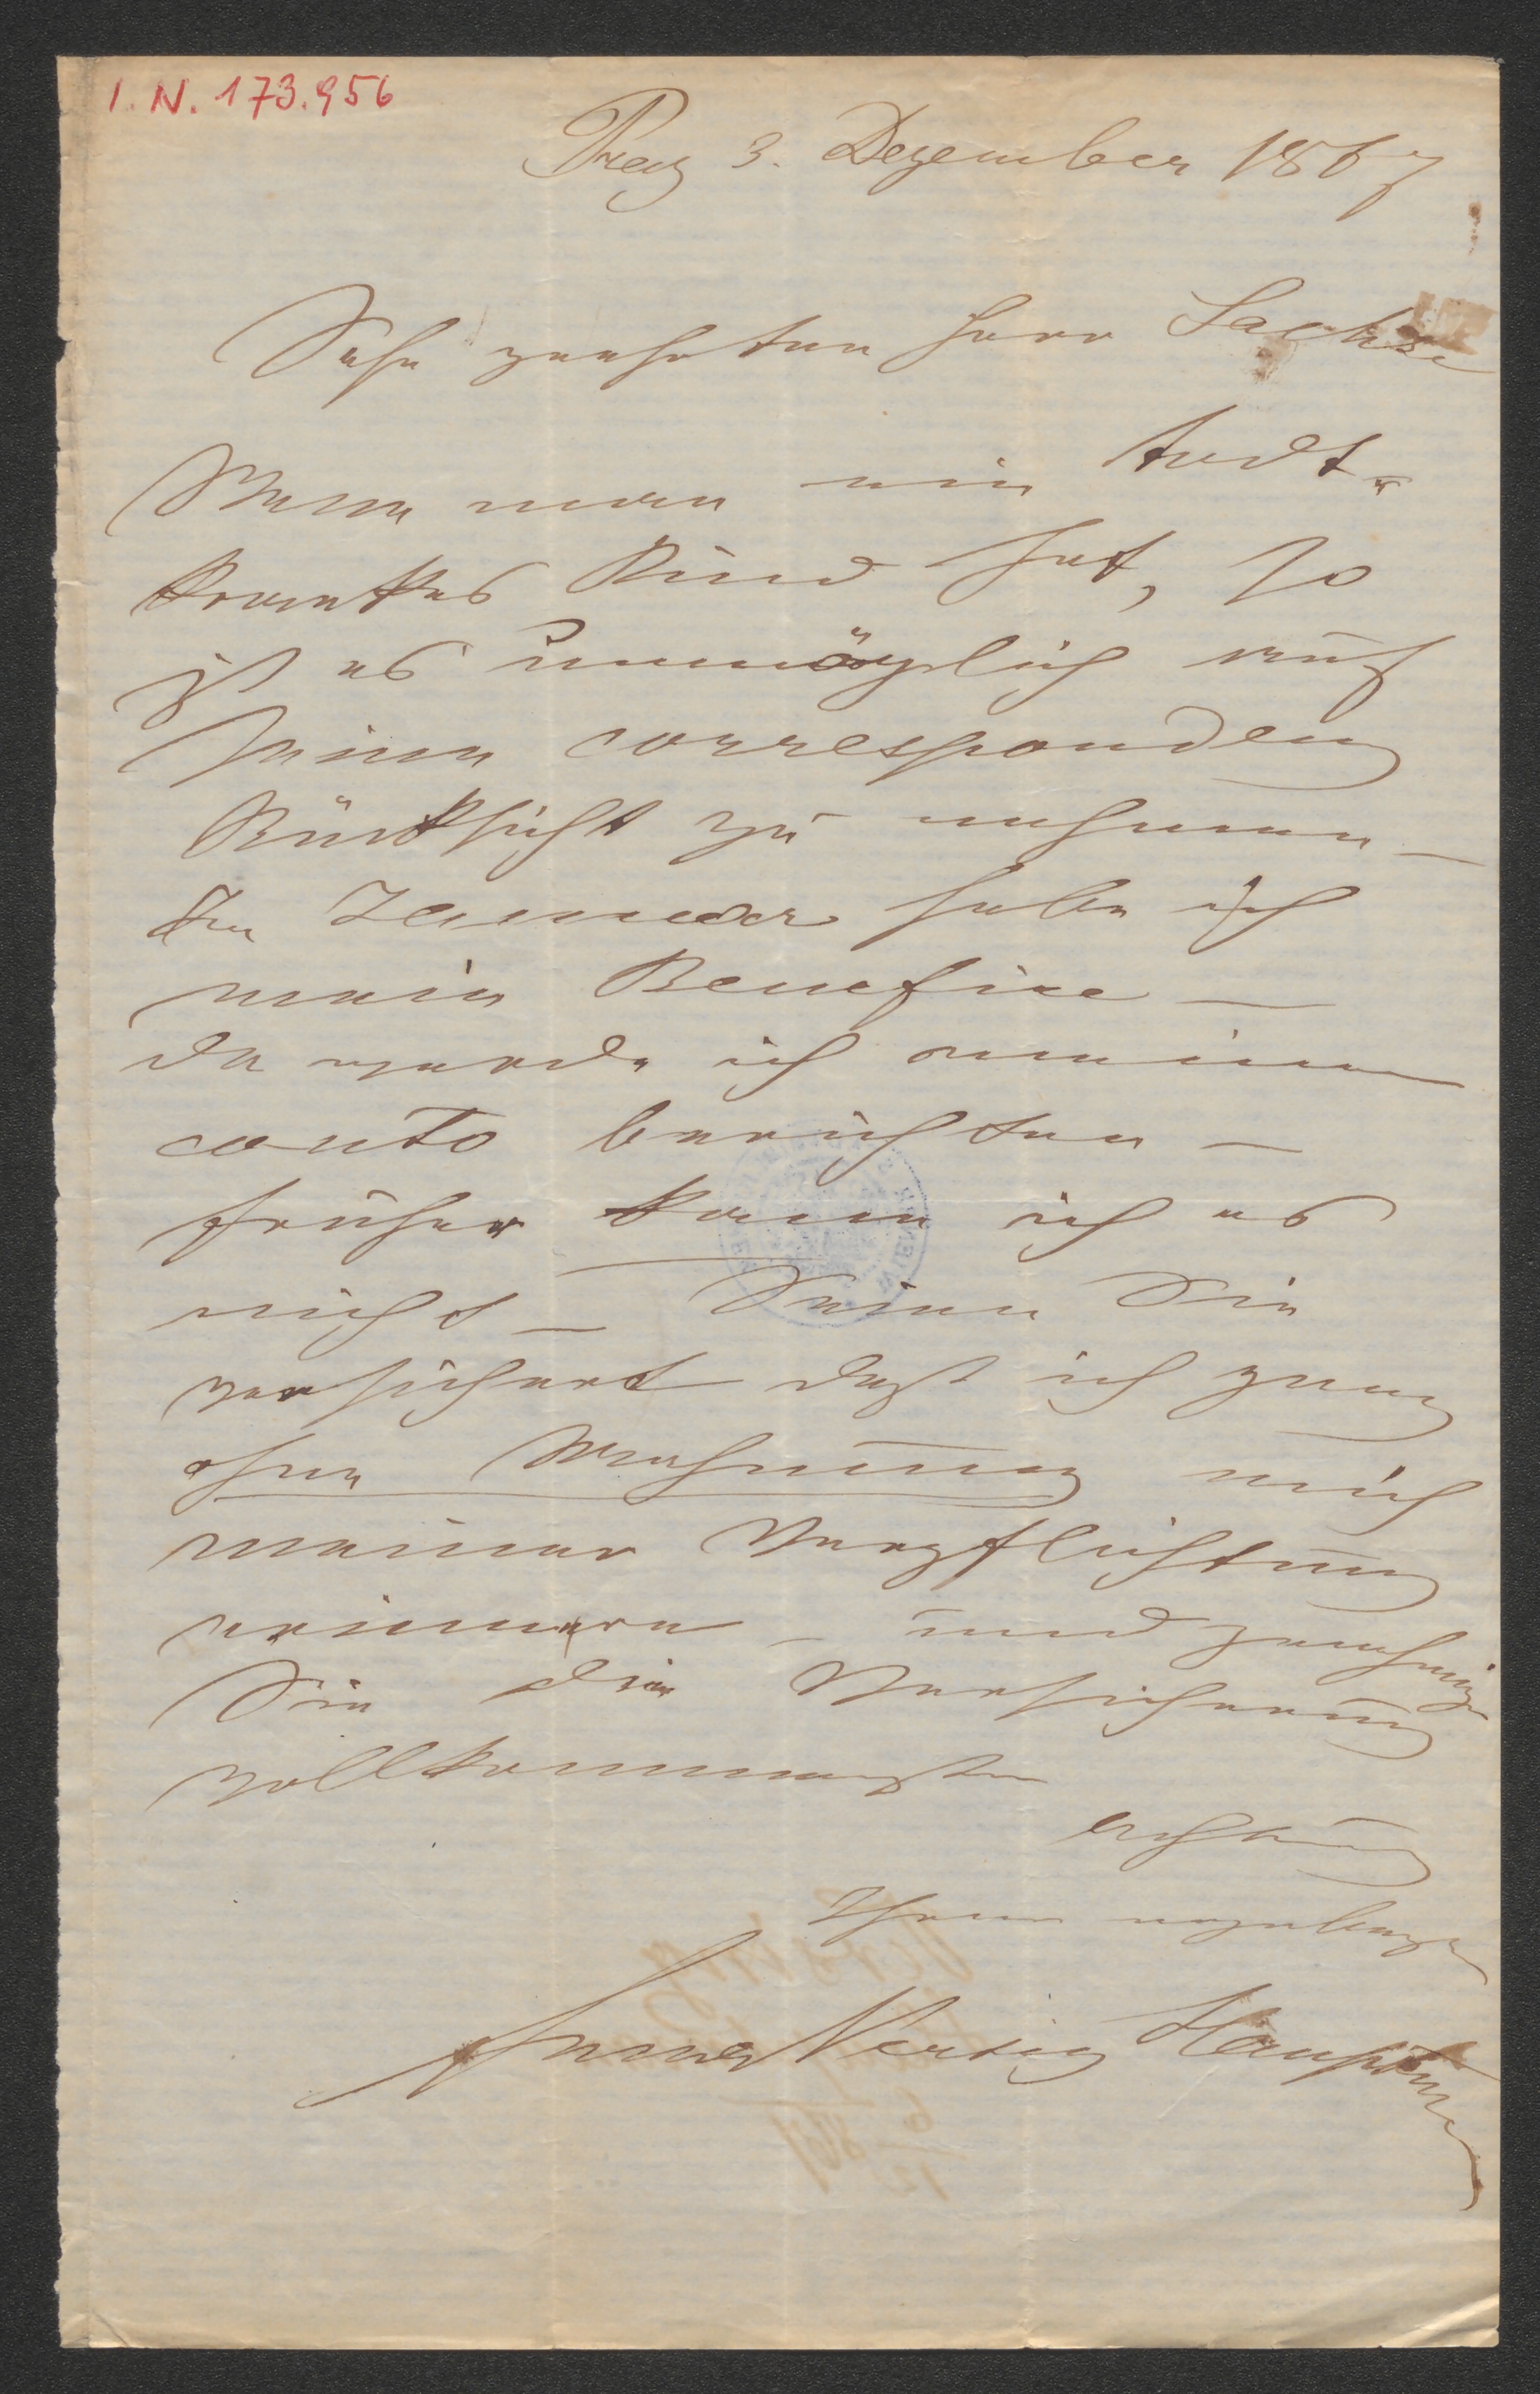 I. N. 173.956
Prag 3. Dezember 1867
Sehr geehrter Herr Sachse
Wenn man ein todt-
krankes Kind hat, so
ist es unmöglich auf
seine correspondenz
Rücksicht zu nehmen –
Im Januar habe ich
mein Benefice –
da werde ich meinen
conto berichten –
früher kann ich es
nicht – Seien Sie
versichert daß ich ganz
ohne Mahnung mich
meiner Verpflichtung
erinnere – und genehmigen
Sie die Versicherung
vollkommenster
Achtung
Ihrer ergebenen
Versing Hauptmann